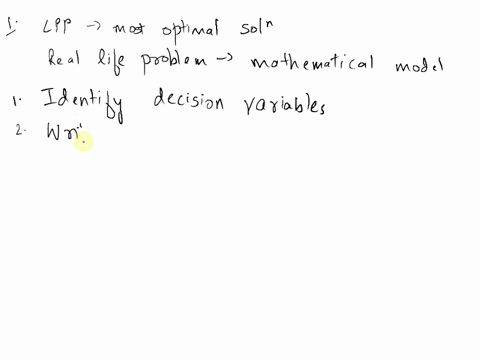 1: LPP → most optimal solⁿ
Real life problem → mathematical model
1. Identify decision variables
2. Wri